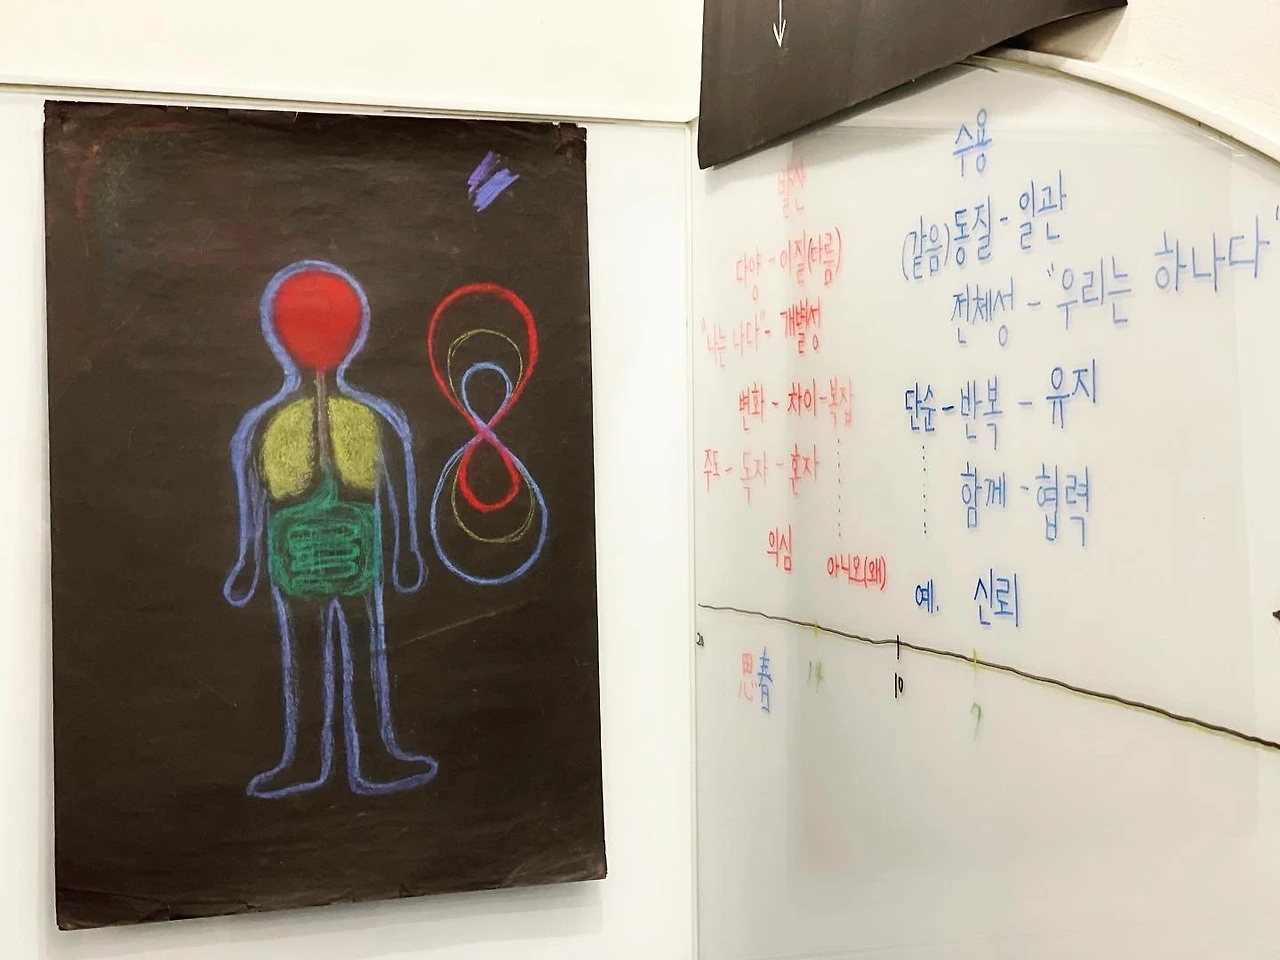 발산
다양 - 이질(다름)
"나는 나다" - 개별성
변화 - 차이 - 복잡
주도 - 독자 - 혼자
의심
아니오(왜)
수용
(같음)동질 - 일관
전체성 - "우리는 하나다"
단순 - 반복 - 유지
함께 - 협력
예. 신뢰
20
思春
14
10
7